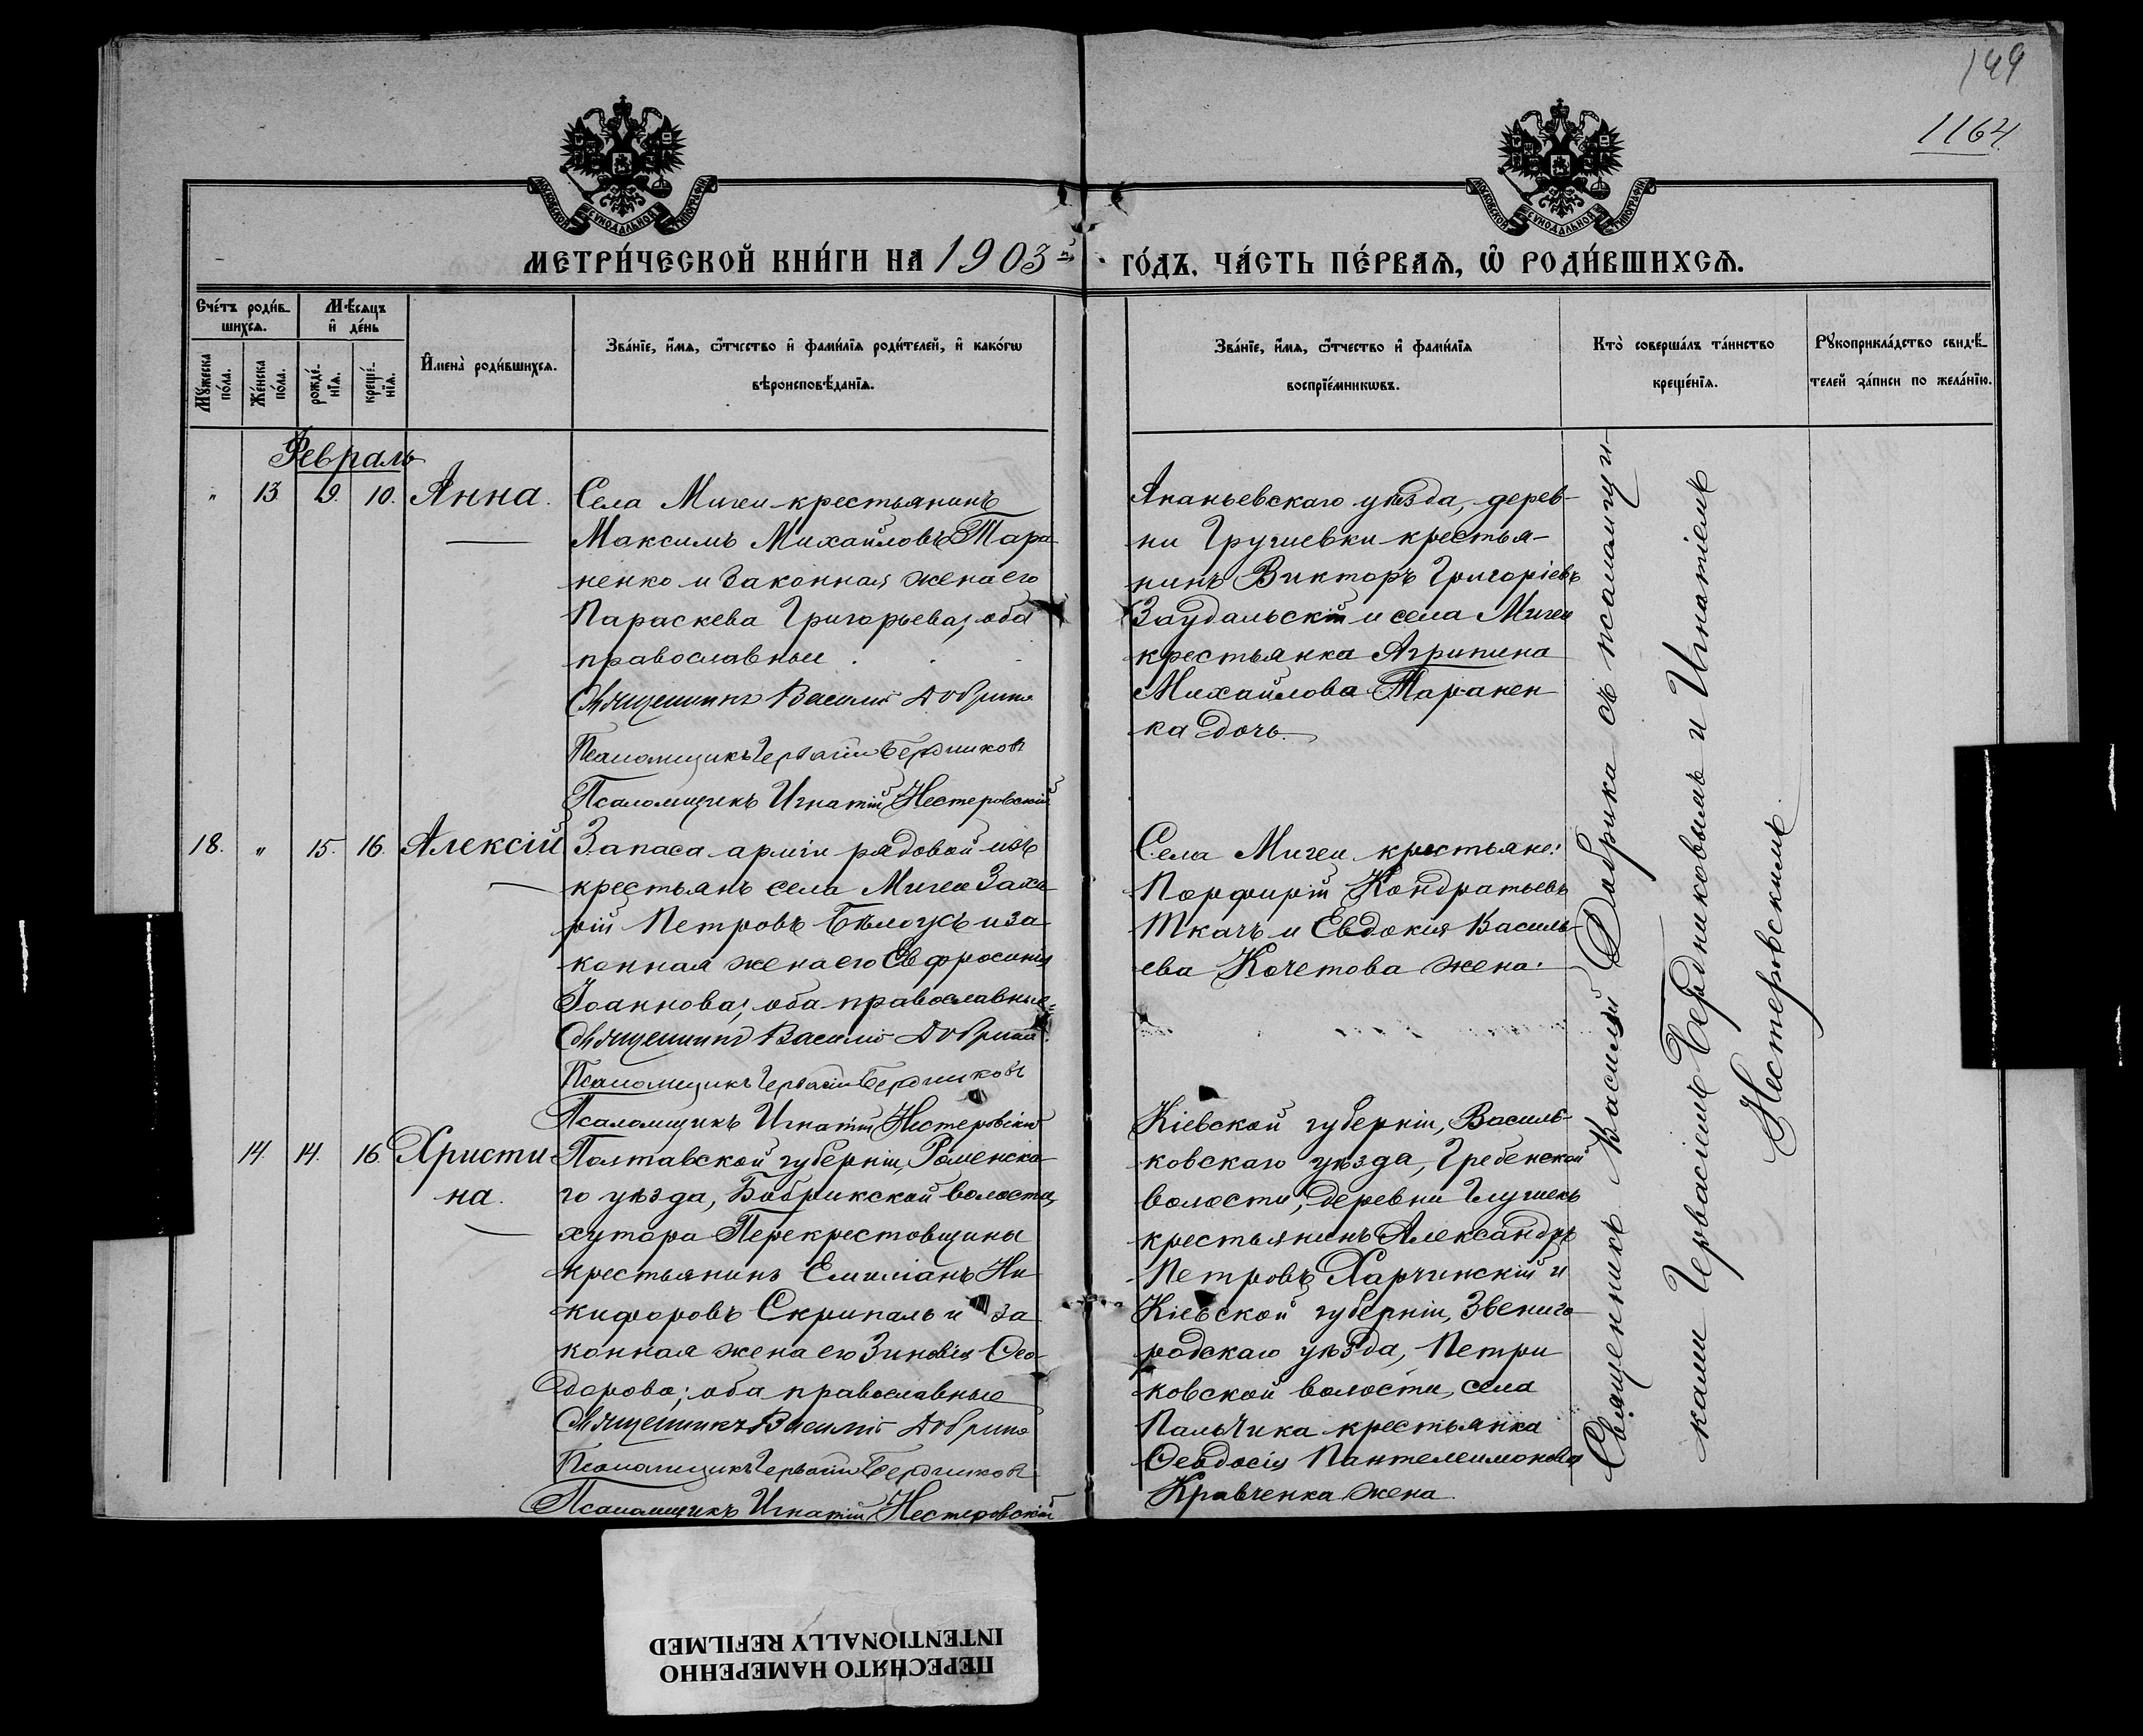 149
1164.
МОСКОВСКОЙ СУНОДАЛЬНОЙ ТИПОГРАФІИ
МОСКОВСКОЙ СУНОДАЛЬНОЙ ТИПОГРАФІИ
МЕТРИ́ЧЕСКОЙ КНИ́ГИ НА 1903й
ГО́ДЪ. ЧА́СТЬ ПЕ́РВАѦ, Ѡ҆ РОДИ́ВШИХСѦ.
Сче́тъ роди́в-
шихсѧ.
Мꙋ́жеска
по́ла.
Же́нска
по́ла.
Мѣ́сѧцъ
и҆ де́нь
рожде́-
нїѧ.
креще́-
нїѧ.
И҆мена̀ роди́вшихсѧ.
Зва́нїе, и҆́мѧ, ѻ҆́тчество и҆ фами́лїѧ роди́телей, и҆ како́гѡ
вѣроисповѣ́данїѧ.
Зва́нїе, и҆́мѧ, ѻ҆́тчество и҆ фами́лїѧ
воспрїе́мникѡвъ.
Кто̀ соверша́лъ та́инство
креще́нїѧ.
Рꙋкоприкла́дство свидѣ́-
телей за́писи по жела́нїю.
Февраль
" 13. 9. 10. Анна.
Села Мигеи крестьянинъ
Максимъ Михайловъ Тара-
ненко и законная жена его
Параскева Григорьева; оба
православные.
Священникъ Василій Добрика
Псаломщикъ Гервасій Бердниковъ
Псаломщикъ Игнатій Нестеровскій
Ананьевскаго уѣзда, дерев-
ни Грушевки крестья-
нинъ Викторъ Григоріевъ
Заудальскій и села Мигеи
крестьянка Агрипина
Михайлова Таранен-
ка дочь.
18. " 15. 16. Алексій
Запаса арміи рядовой изъ
крестьянъ села Мигеи Заха-
рій Петровъ Бѣлоусъ и за-
конная жена его Евфросинія
Іоаннова; оба православные
Священникъ Василій Добрика
Псаломщикъ Гервасій Бердниковъ
Псаломщикъ Игнатій Нестеровскій
Села Мигеи крестьяне:
Порфирій Кондратьевъ
Ткачъ и Евдокия Василь-
ева Кочетова жена.
14. 14. 16. Христи
на.
Полтавской губерніи, Роменска-
го уѣзда, Бобрикской волости,
хутора Перекрестовщины
крестьянинъ Емиліанъ Ни-
кифоровъ Скрипаль и за-
конная жена его Зиновія Ѳео-
дорова; оба православные
Священникъ Василій Добрика
Псаломщикъ Гервасій Бердниковъ
Псаломщикъ Игнатій Нестеровскій
Кіевской губерніи, Василь-
ковскаго уѣзда, Гребенской
волости, деревни Глушекъ
крестьянинъ Александръ
Петровъ Харчинскій и
Кіевской губерніи, Звениго-
родскаго уѣзда, Петри-
ковской волости, села
Пальчика крестьянка
Ѳеодосія Пантелеимонова
Кравченка жена
Священникъ Василій Добрика съ псаломщи-
ками Гервасіемъ Бердниковымъ и Игнатіемъ
Нестеровскимъ.
ПЕРЕСНЯТО НАМЕРЕННО
INTENTIONALLY REFILMED